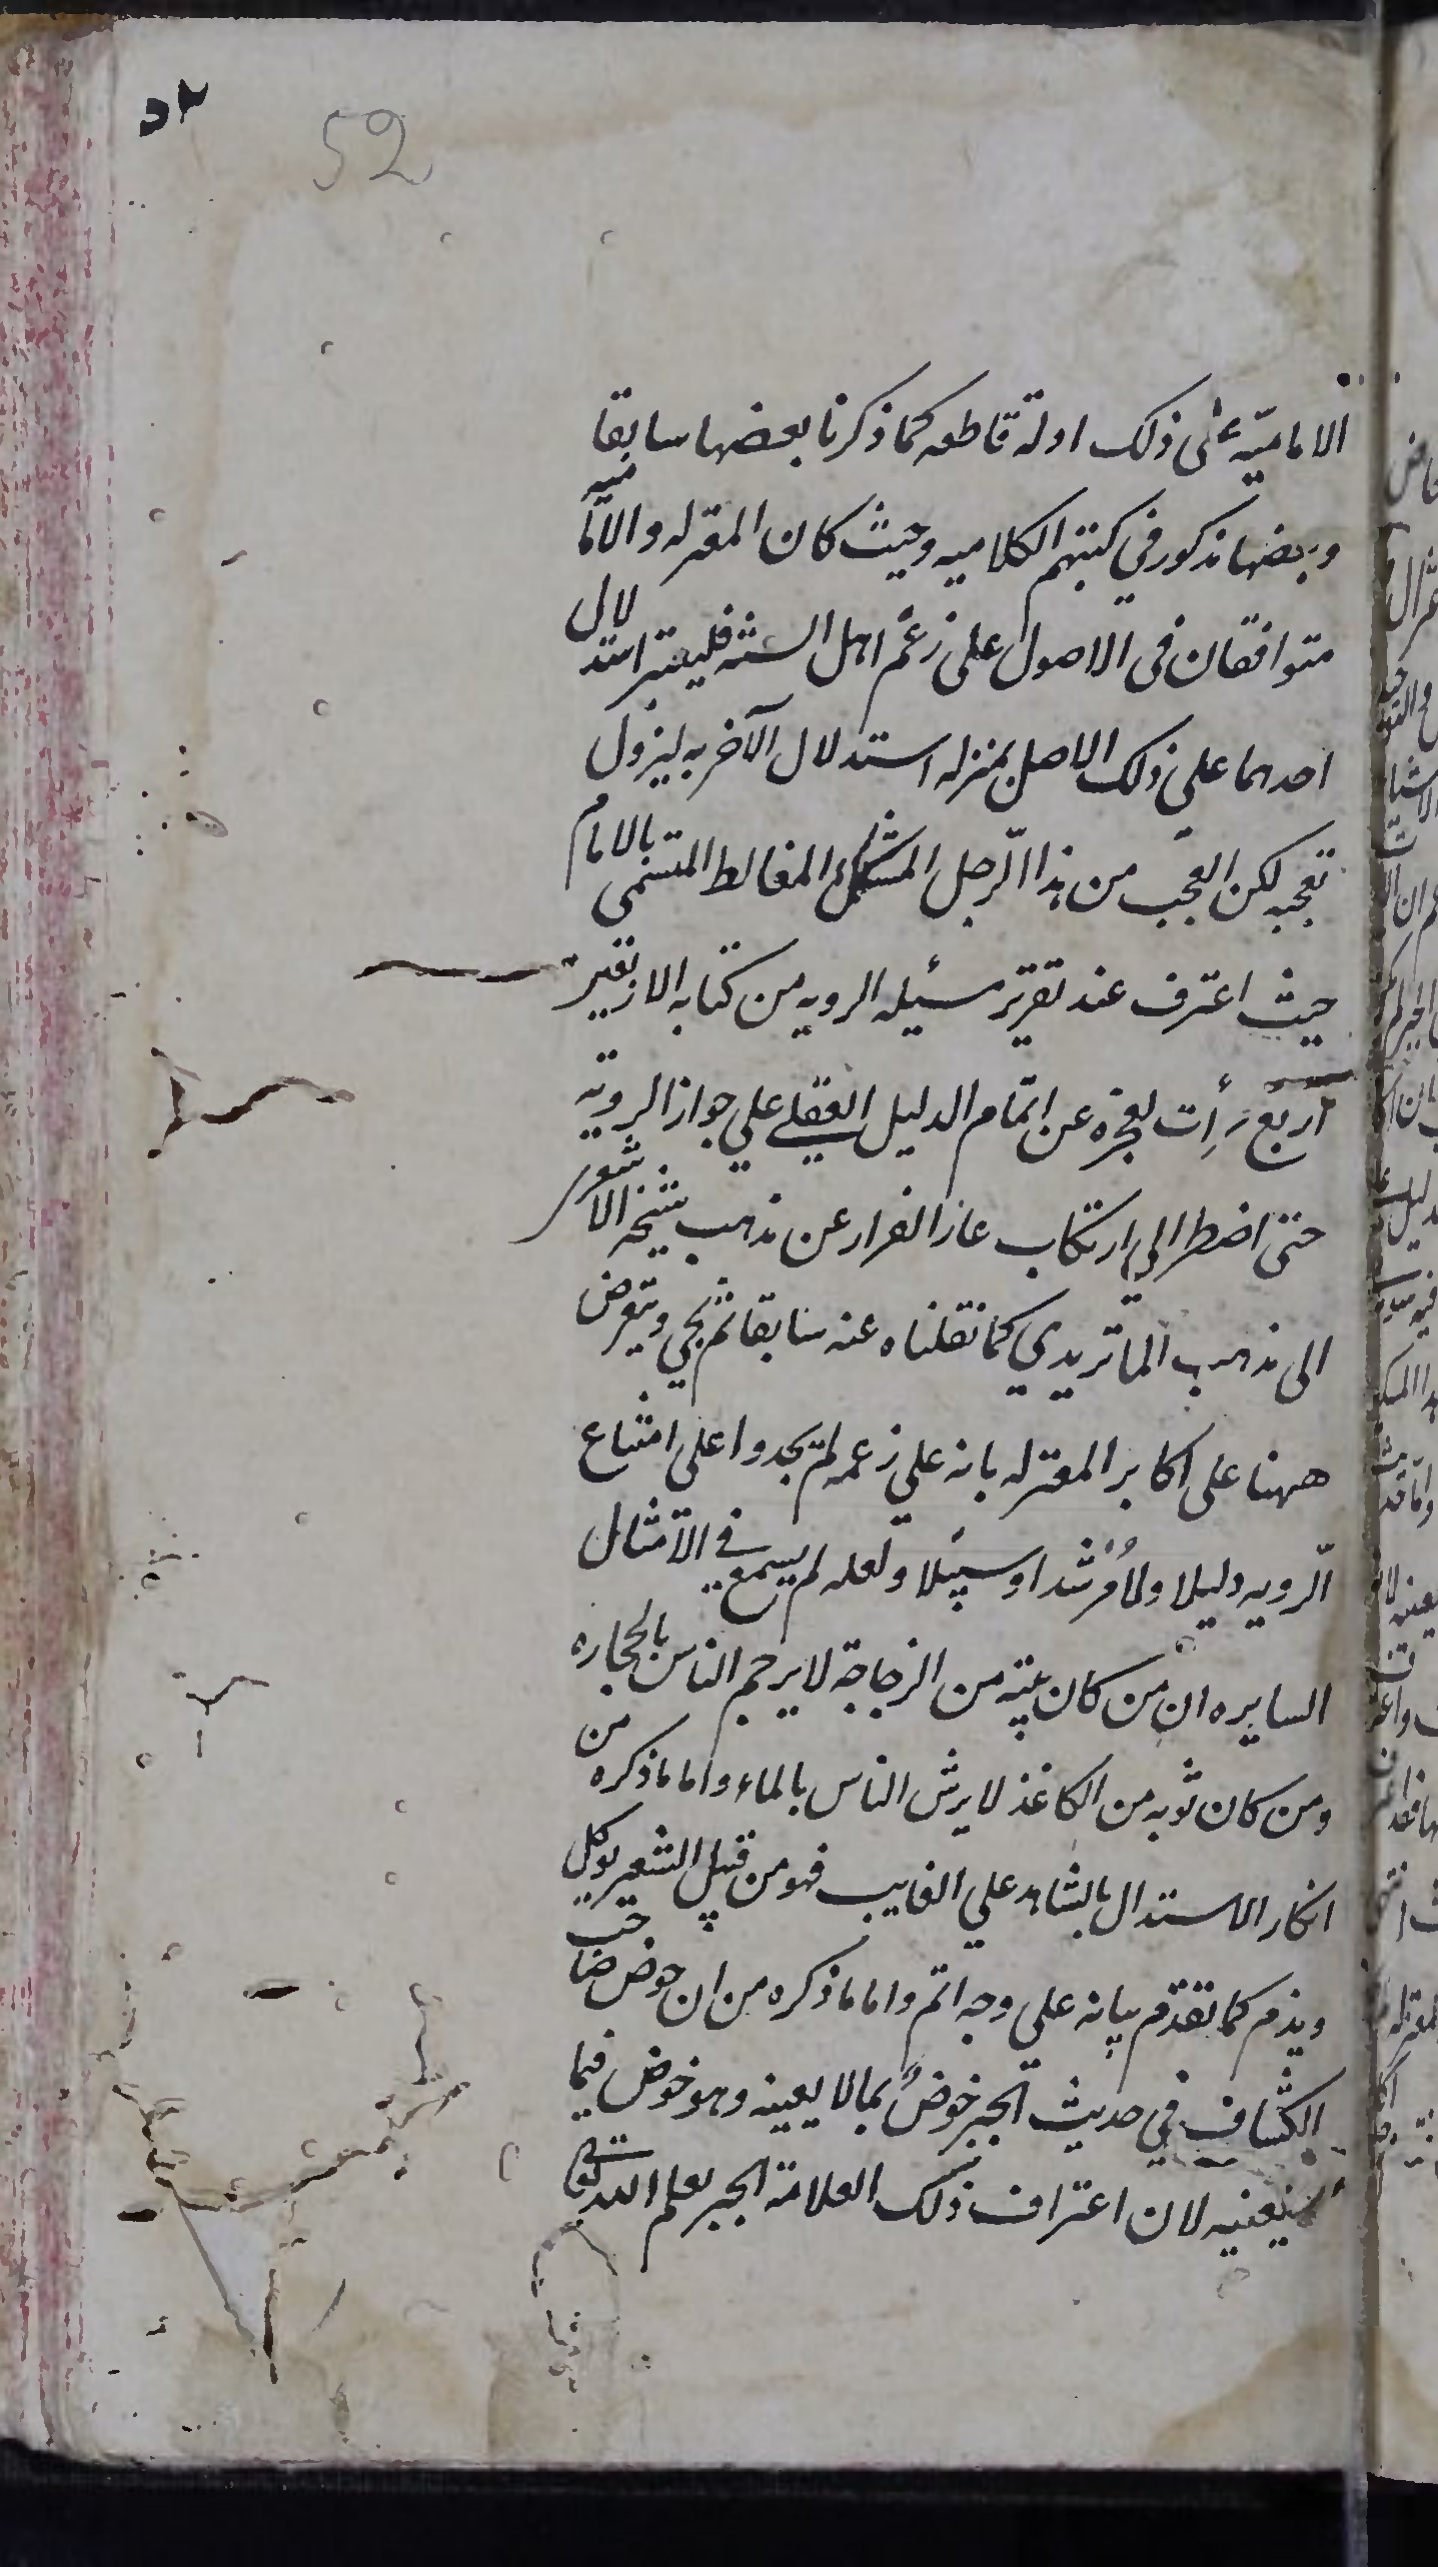 ٥٢
52
الاماميّه على ذلك ادلة قاطعه كما ذكرنا بعضها سابقا
وبعضها مذكور في كتبهم الكلاميه وحيث كان المعتزله والاماميه
متوافقان فى الاصول على زعم اهل السنه فليعتبر استدلال
احدهما على ذلك الاصل بمنزله استدلال الآخر به ليزول
تعجبه لكن العجب من هذا الرّجل المشكك المغالط المتسمى بالامام
حيث اعترف عند تقرير مسئله الرويه من كتابه الاربعين
اربع مرأت بعجزه عن اتمام الدليل العقلي على جواز الروية
حتى اضطر الي ارتكاب عار الفرار عن مذهب شيخه الاشعرى
الى مذهب الماتريدي كما نقلناه عنه سابقا ثم يجى ويتعرض
ههنا على اكابر المعتزله بانه علي زعمه لم يجدوا على امتناع
الرويه دليلا ولا مرشدا وسبيلا ولعله لم يسمع في الامثال
السايره ان من كان بيته من الزجاجة لا يرجم الناس بالحجاره
ومن كان ثوبه من الكاغذ لا يرش الناس بالماء واما ما ذكره من
انكار الاستدال بالشاهد علي الغايب فهو من قبيل الشعير يوكل
ويذم كما تقدم بيانه على وجه اتم واما ما ذكره من ان خوض صاحب
الكشاف في حديث الجبر خوض بما لا يعينه وهو خوض فيما
يعنيه لان اعتراف ذلك العلامة الجبر بعلم الله تعالى